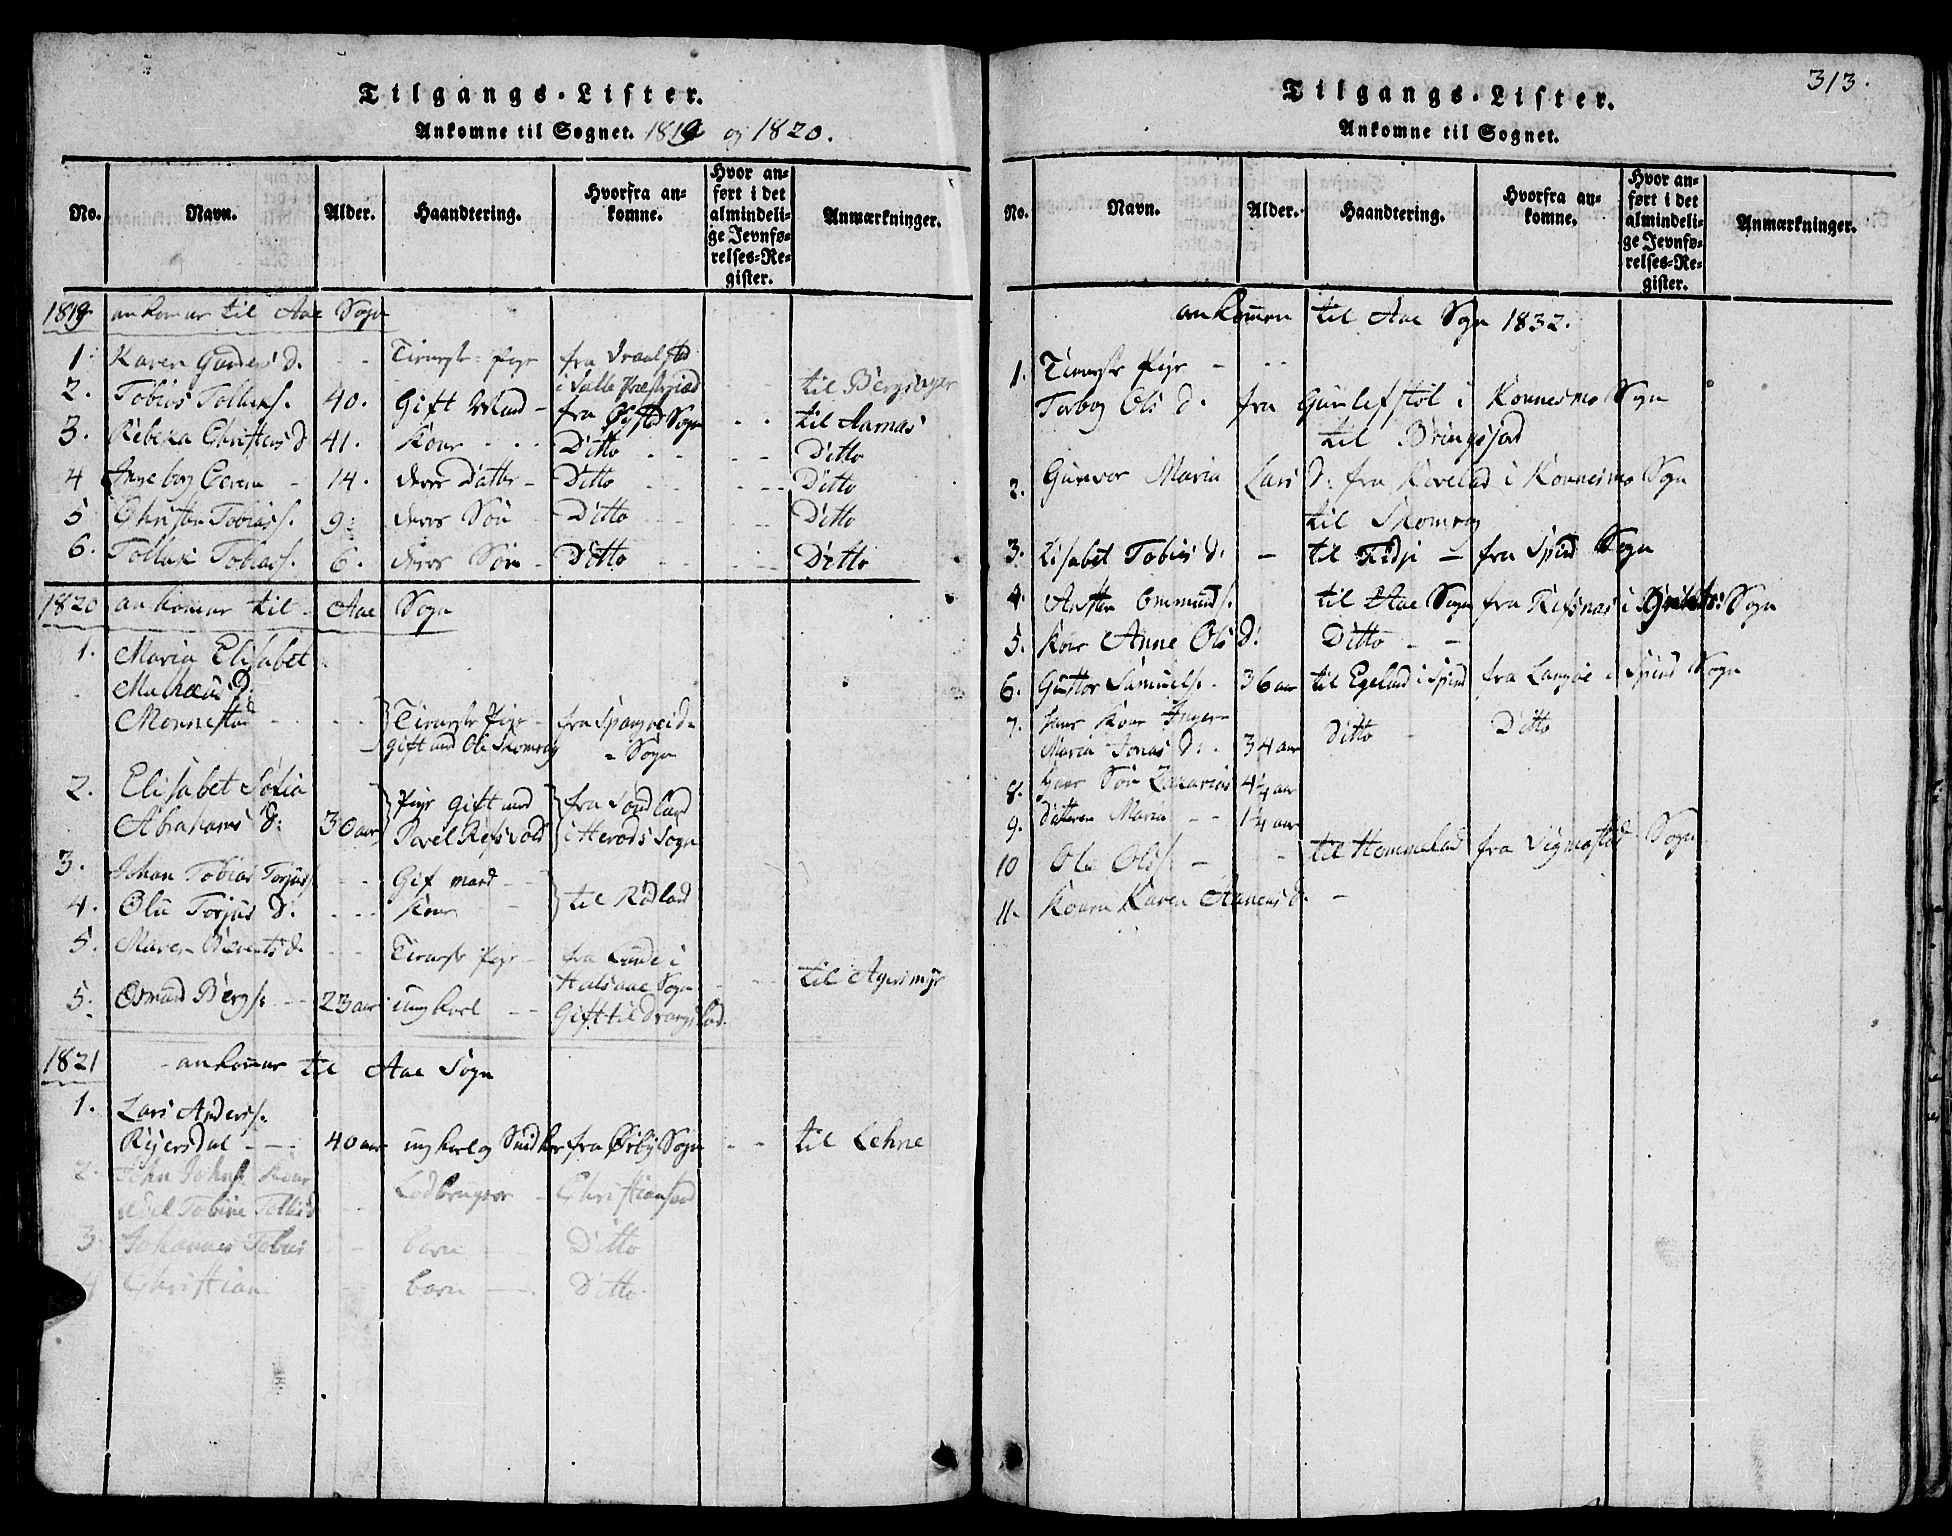 Tilgangs-Lister.
Ankomne til Sognet. 1819 og 1820.
No. Navn. Alder. Haandtering. Hvorfra ankomne. Hvor anført i det almindelige Jevnførelses-Register. Anmærkninger.
1819 ankomne til Aae Sogn
1. Karen Gunders d. - - Tieneste-Pige fra
til
2. Tobias Tollefs. 40. Gift Mand - fra Sogn - - til Aamas
3. Rebeka Christens d 41. Kone - - Ditto - - Ditto
4 Ingebor - 14. deres Datter - Ditto - - Ditto
5 Christen Tobias s. 9. deres Søn - Ditto - - Ditto
6. Tobias s. 6. deres Søn - Ditto - - Ditto
1820 ankomne til Aae Sogn
1. Maria Elisabet
Matheus D.
Monnestad - - - Tieneste Pige - fra Spangreid-
gift med Ole Skomrag - Sogn
2. Elisabet Sofia Pige gift med fra
Abrahams d: 30 aar Pavel Refsvold i Herods Sogn
3. Johan Tobias Torjus s. - - Gif mand - -
4. Olu Torjus d. - - - Kone - til Rødland
5. Maren Berents d. - - Tieneste pige - fra Lunde i
Halsaae Sogn - - til
5. Osmund Bergs. - - 23 aar ungkarl - - Gift til Drangsland.
1821 - ankomne til Aae Sogn
1. Lars Anders s.
Reiersdal - - - 40 aar ungkarl og fra Øiby Sogn - - til Lehne
2. John Johns. Kone
Tobine - - Lodbruger - Christiansand
3. Johannes Tobias - - barn - Ditto
4 Christian - - barn - Ditto
313.
Tilgangs-Lister.
Ankomne til Sognet.
No. Navn. Alder. Haandtering. Hvorfra ankomne. Hvor anført i det almindelige Jevnførelses-Register. Anmærkninger.
ankommen til Aae Sogn 1832.
1. Tieneste Pige - - -
Torbor Ols d. fra Gunlefstøl i Konnesmo Sogn
til Bringsjord
2. Gunvor Maria Lars d. fra i Konnesmo Sogn
til Skomrag
3. Lisabet Tobias d. - til - fra Spind Sogn
4. Austen Ommunds. til Aae Sogn fra Refsnæs i Sogn
5. Kone Anne Ols d. Ditto - -
6. Guttor Samuels. - 36 aar til Egeland i Spind fra Langøe i Spind Sogn
7. hans Kone Inger
Maria Jonas d. - 34 aar ditto - Ditto
8. Søn Zakarias 4 1/4 aar
9. Datteren Maria - - 1/4 aar
10 Ole Ols s. - - til Hommelad fra Vigmostad Sogn
11. Konen Karen d. -